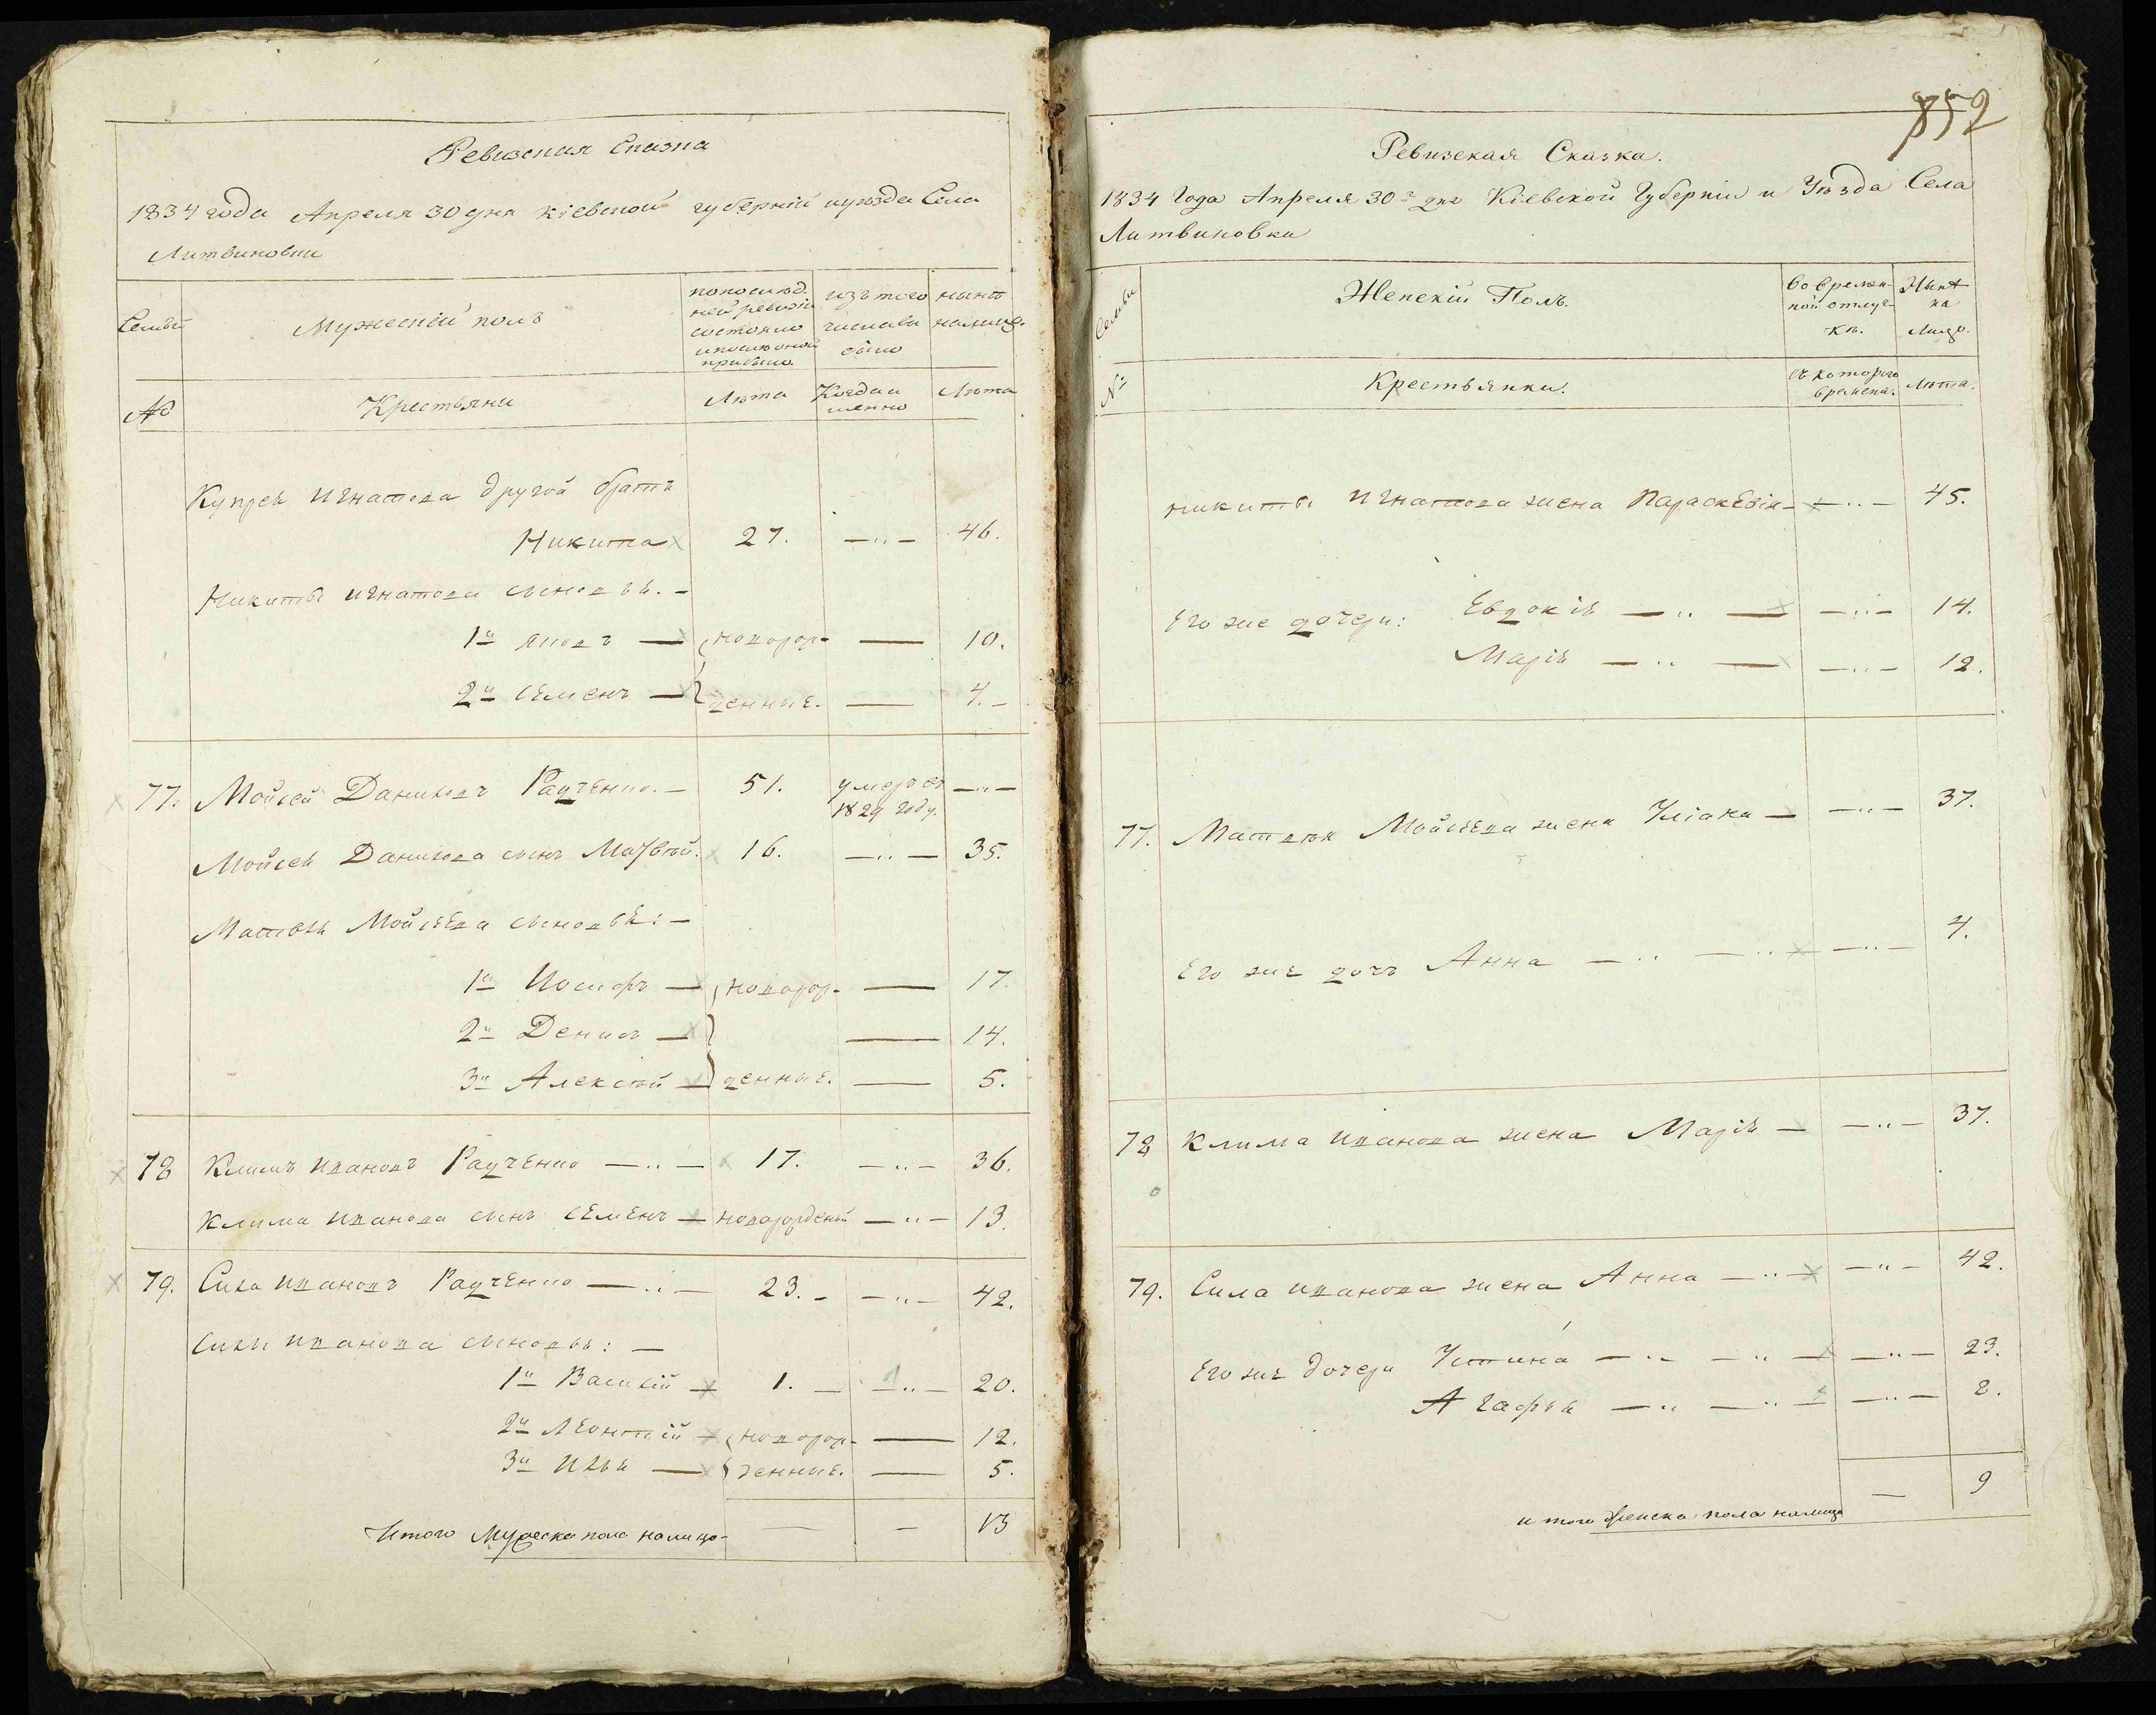 Ревизская Сказка
1834 года Апреля 30 дня Кіевской губерній иуезда Села
Литвиновки
Семьи
Мужескій полъ
попослѣд.
ней ревизіи
состояло
ипосле оной
прибыло.
изъ того
числа вы
было
нынѣ
налицо.
№
Крестьяни
Лѣта
Когда и
менно
Лѣта
Купрея Игнатова другой братъ
Никита 27. —„— 46.
Никиты Игнатова сыновья. –
1й Яковъ — новорож- — 10.
2й Семенъ — денные. — 4. –
77. Мойсей Даниловъ Радченко. – 51. умеръ въ —„—
1829 году.
Мойсея Данилова сынъ Матвѣй. 16. —„— 35.
Матвѣя Мойсеева сыновья: –
1й Іосифъ — новорож- — 17.
2й Денисъ — — 14.
3й Алексѣй — денные. — 5.
78 Климъ Ивановъ Радченко —„— 17. —„— 36.
Клима Иванова сынъ Семенъ — новорожденый —„— 13.
79. Сила Ивановъ Радченко —„— 23. – —„— 42.
Силы Иванова сыновья: —
1й Василій — 1. — —„— 20.
2й Леонтій — новорож- — 12.
3й Илья — денные. — 5.
Итого Мужеска пола налицо — – 13
852
Ревизская Сказка.
1834 Года Апреля 30го дня Кіевской Губерніи и Уѣзда Села
Литвиновки
Семьи
Женскій Полъ.
Во времен-
ной отлуч-
кѣ.
Нынѣ
на
Лицо.
№
Крестьянки.
съ которого
времени.
Лѣта.
Никиты Игнатова жена Параскевія — —„— 45.
Его же дочери: Евдокія —„— —„— 14.
Марія —„— —„— 12.
77. Матвѣя Мойсеева жена Уліана — —„— 37.
Его же дочь Анна —„— —„— —„— 4.
78 Клима Иванова жена Марія — —„— 37.
79. Сила Иванова жена Анна —„— —„— 42.
Его же дочери Устина —„— —„— —„— 23.
Агафья —„— —„— —„— 2.
итого женска пола налицо — 9